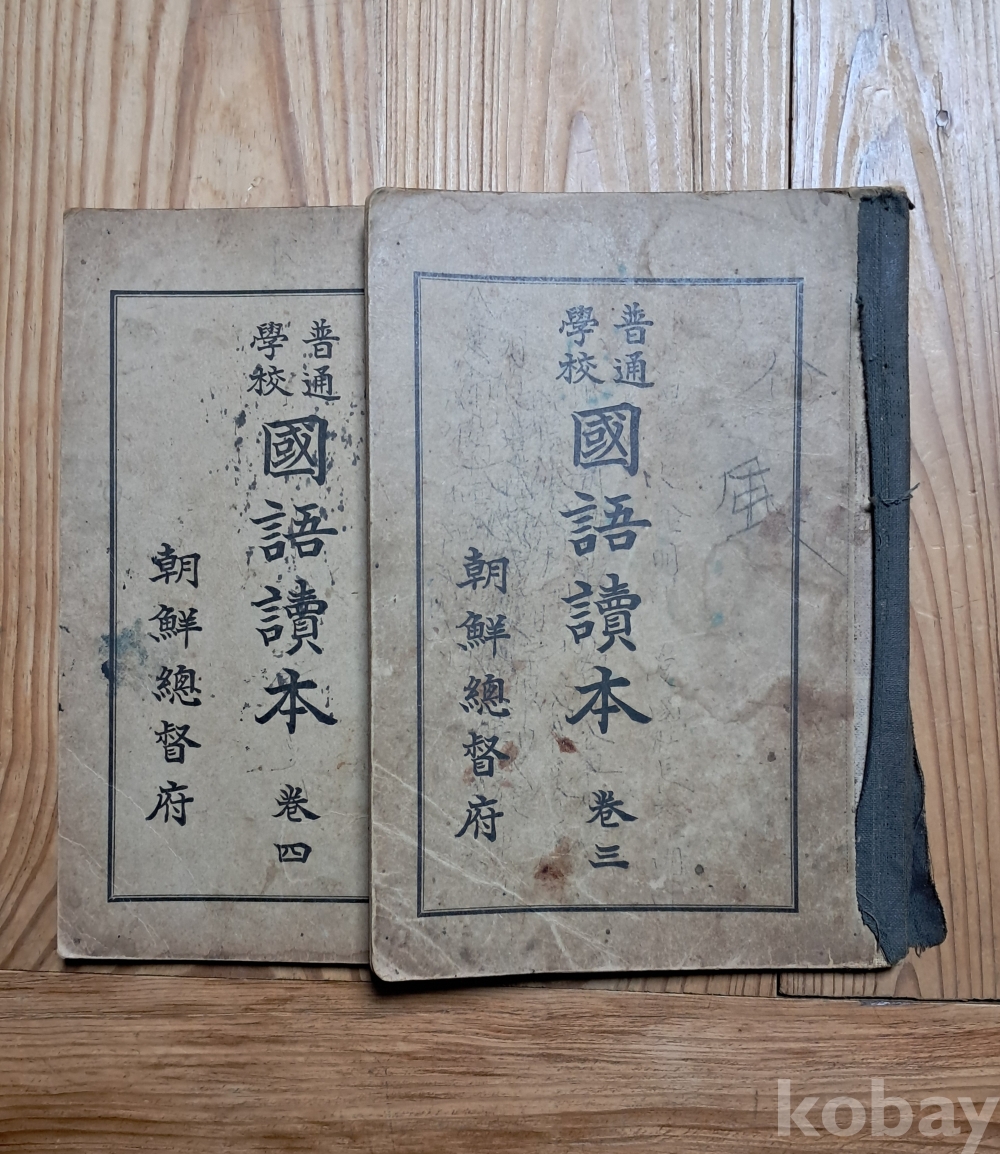 普通
學校
國語讀本
卷四
朝鮮總督府
普通
學校
國語讀本
卷三
朝鮮總督府
kobay